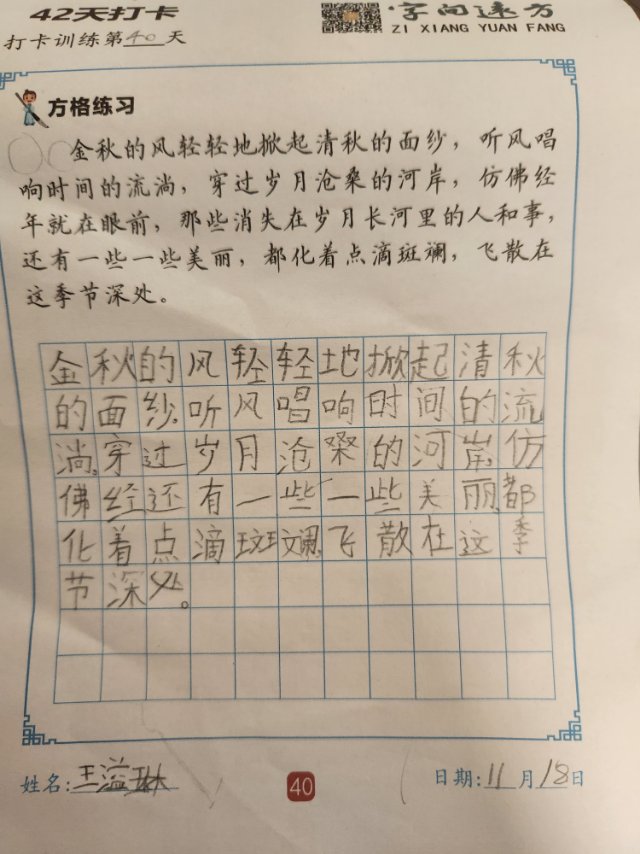 42天打卡
字向远方
打卡训练第40天
ZI XIANG YUAN FANG
方格练习
金秋的风轻轻地掀起清秋的面纱，听风唱
响时间的流淌，穿过岁月沧桑的河岸，仿佛经
年就在眼前，那些消失在岁月长河里的人和事，
还有一些一些美丽，都化着点滴斑斓，飞散在
这季节深处。
金秋的风轻轻地掀起清秋
的面纱，听风唱响时间的流
淌，穿过岁月沧桑的河岸，仿
佛经还有一些一些美丽都
化着点滴斑斓，飞散在这季
节深处。
姓名：王溢琳
40
日期：11月18日